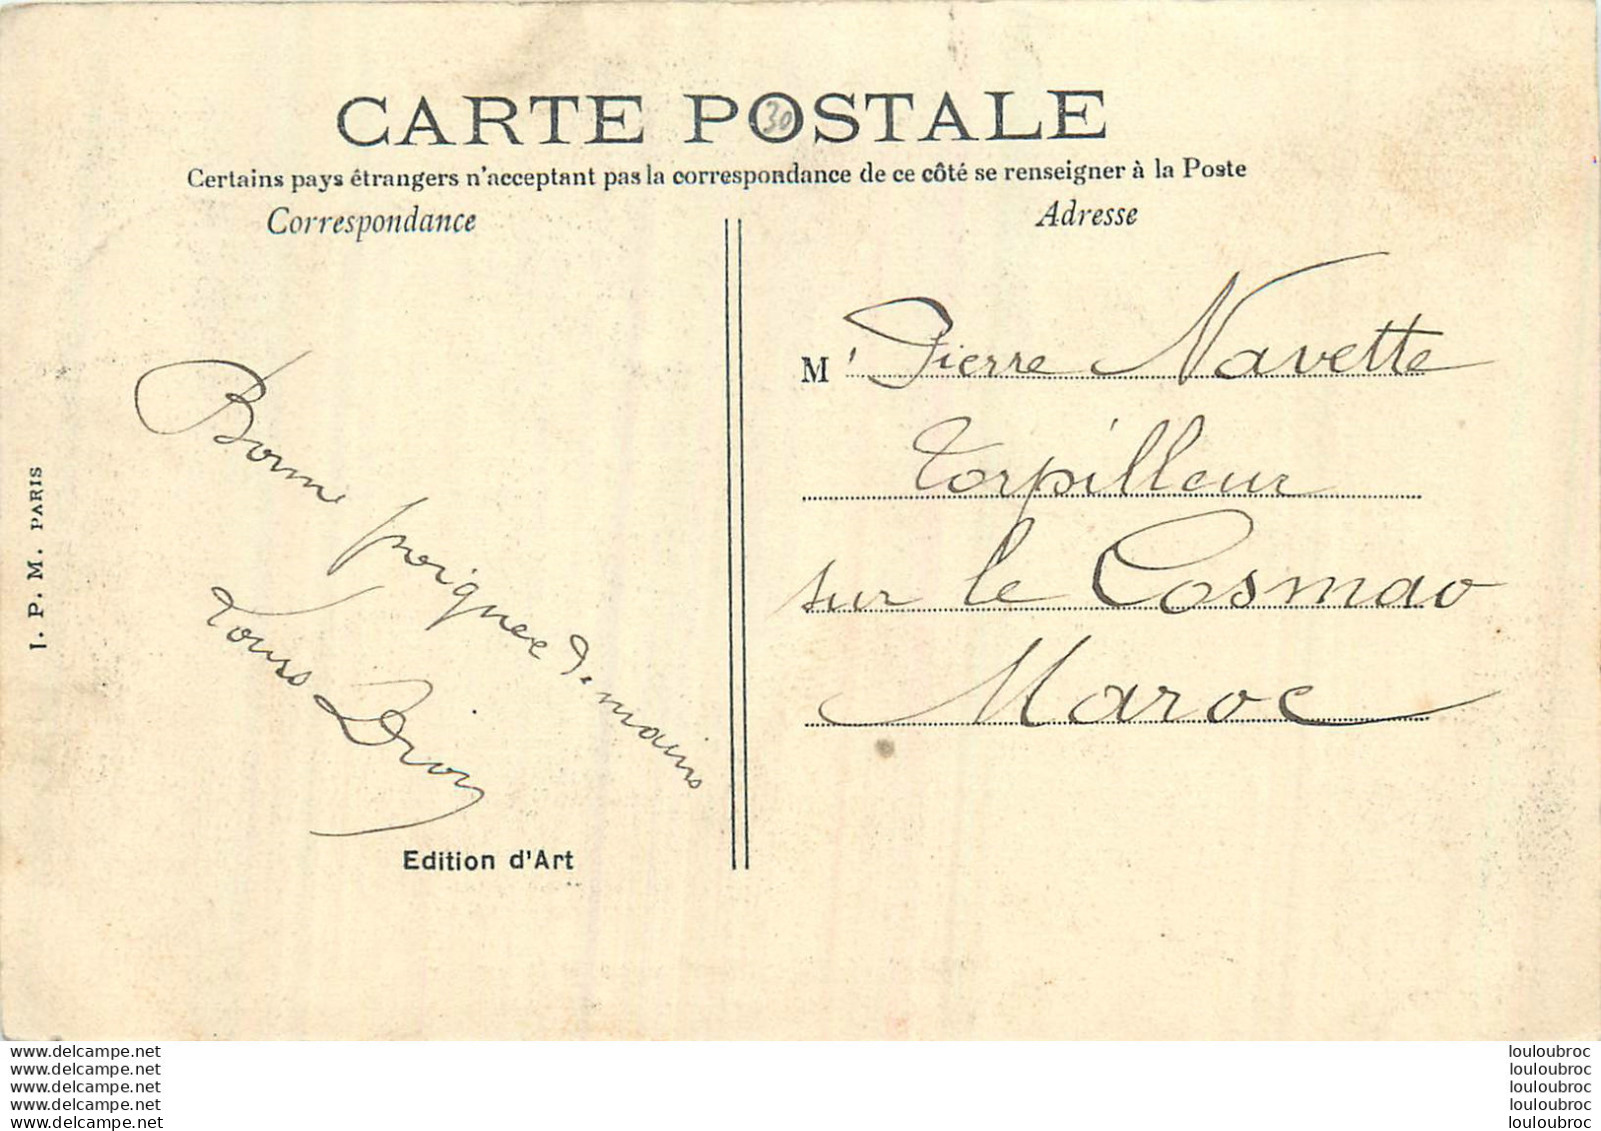 CARTE POSTALE
30
Certains pays étrangers n'acceptant pas la correspondance de ce côté se renseigner à la Poste
Correspondance
Adresse
Bonne poignée de mains
J. P. M. PARIS
Edition d'Art
M r Pierre Navette
Torpilleur
sur le Cosmao
Maroc
www.delcampe.net
www.delcampe.net
www.delcampe.net
www.delcampe.net
www.delcampe.net
louloubroc
louloubroc
louloubroc
louloubroc
louloubroc